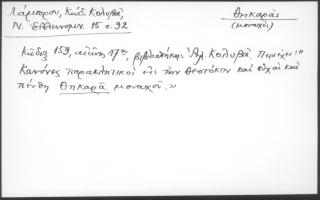 Λάμπρου, Κώδ. Κολυβᾶ,
Ν. Ἑλληνομν. 15 σ. 92
Θηκαρᾶς
(μοναχός)
Κῶδιξ 159, αἰῶνος 17ου, βιβλιοθήκης Ἀλ. Κολυβᾶ. Περιέχει: "
Κανόνες παρακλητικοί εἰς τὴν Θεοτόκον καὶ εὐχαὶ καὶ
πένθη Θηκαρᾶ μοναχοῦ. "